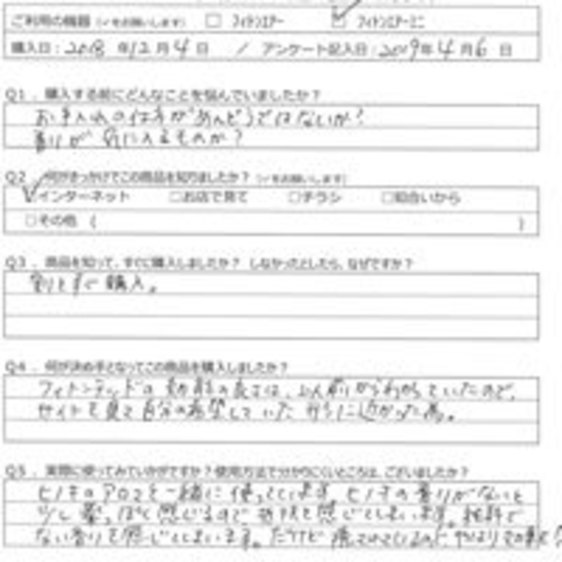 ご利用の機器（✓をお願いします） □ フィトンエアー ☑ フィトンエアーミニ
購入日：2018 年12月 4 日 ／ アンケート記入日：2019年 4月 6 日
Q1 ．購入する前にどんなことを悩んでいましたか？
お手入れの仕方がめんどうではないか？
香りが 気に入るものか？
Q2 ．何がきっかけでこの商品を知りましたか？（✓をお願いします）
☑インターネット □お店で見て □チラシ □知合いから
□その他 （ ）
Q3 ．商品を知って、すぐに購入しましたか？ しなかったとしたら、なぜですか？
割とすぐ購入。
Q4 ．何が決め手となってこの商品を購入しましたか？
フィトンチッドの効能の良さは、以前からわかっていたので、
サイトを見て自分の希望していた
に近かった為。
Q5 ．実際に使ってみていかがですか？使用方法で分かりにくいところは、ございましたか？
ヒノキのアロマと一緒に使っています。ヒノキの香りがないと
少し薬っぽく感じるので
感じてしまいます。
ない香りを感じてしまいます。だけど
やはり効果